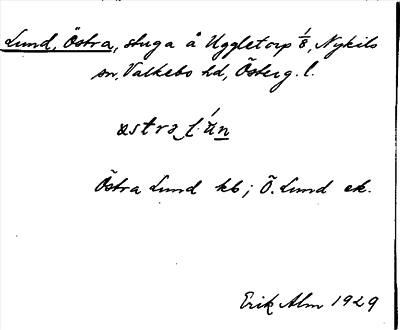 Lund, Östra, stuga å Uggletorp 1/8, Nykils
sn, Valkebo hd, Österg. l.
Östra Lund kb; Ö. Lund ek.
Erik Alm 1929